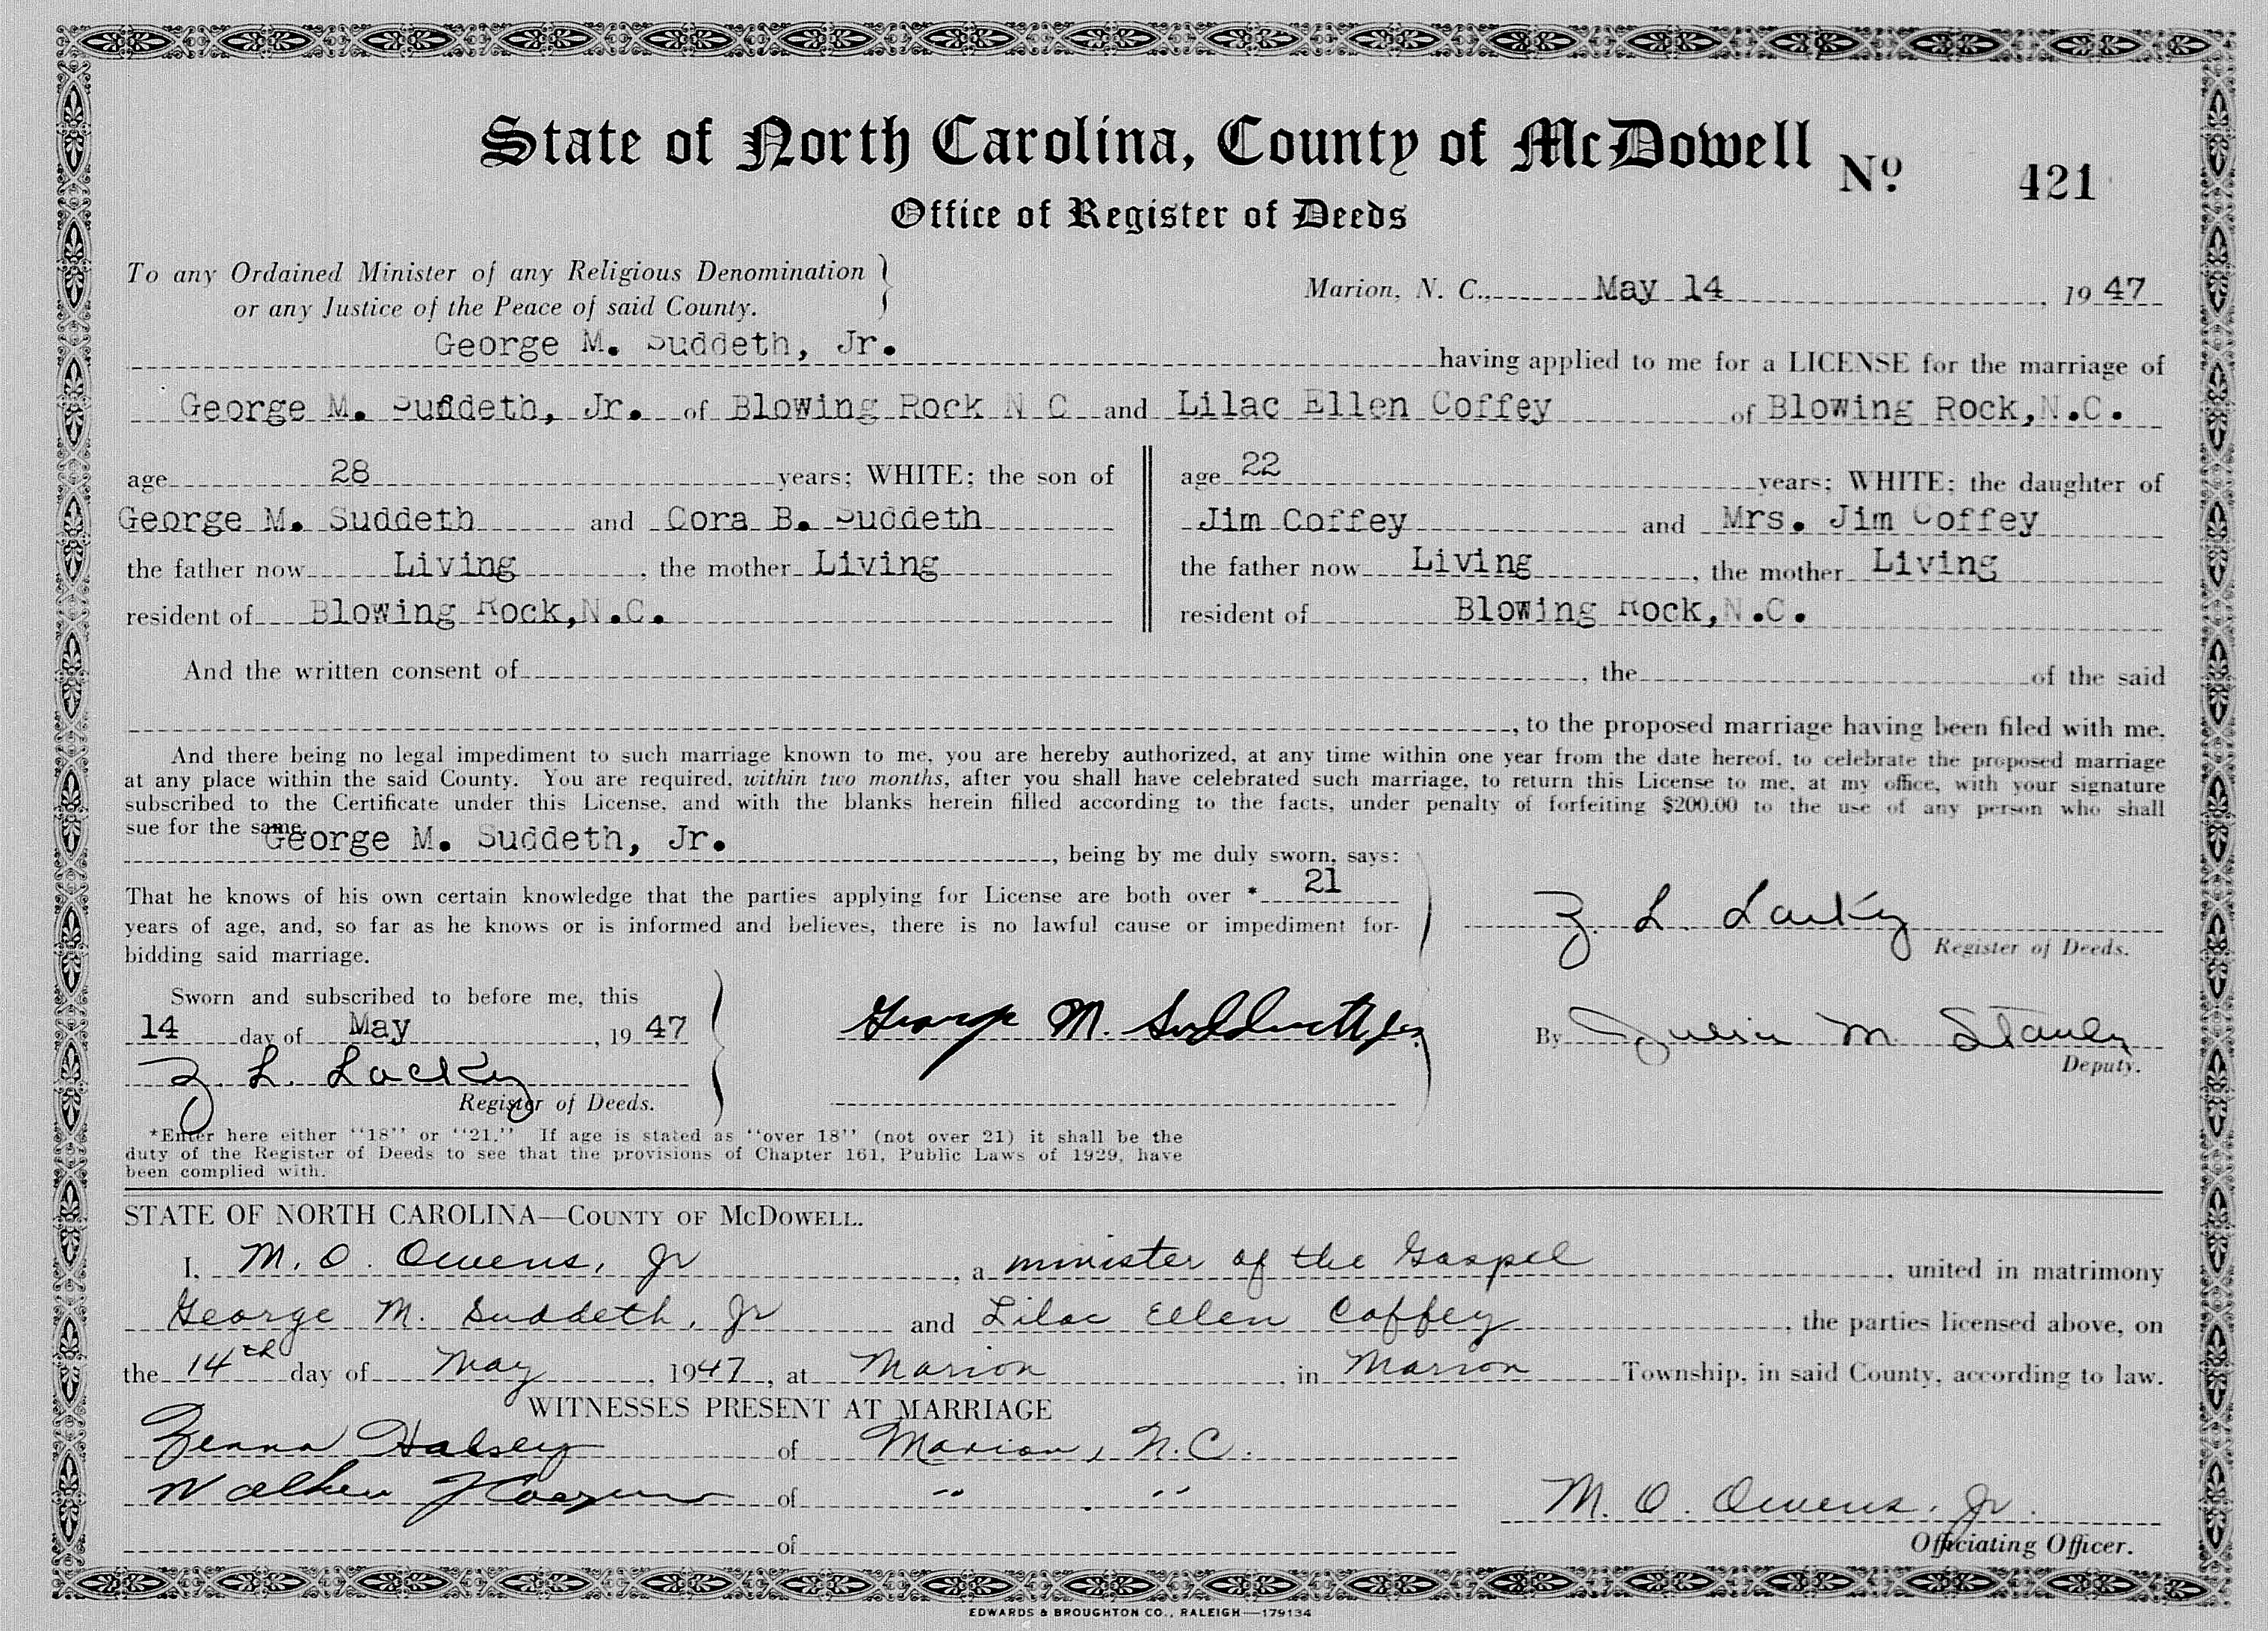 State of North Carolina, County of McDowell No. 421
Office of Register of Deeds
To any Ordained Minister of any Religious Denomination
or any Justice of the Peace of said County.
Marion, N. C., May 14, 1947
George M. Suddeth, Jr. having applied to me for a LICENSE for the marriage of
George M. Suddeth, Jr. of Blowing Rock N C and Lilac Ellen Coffey of Blowing Rock, N.C.
age 28 years; WHITE; the son of
George M. Suddeth and Cora B. Suddeth
the father now Living, the mother Living
resident of Blowing Rock, N.C.
age 22 years; WHITE; the daughter of
Jim Coffey and Mrs. Jim Coffey
the father now Living, the mother Living
resident of Blowing Rock, N.C.
And the written consent of , the of the said
, to the proposed marriage having been filed with me.
And there being no legal impediment to such marriage known to me, you are hereby authorized, at any time within one year from the date hereof, to celebrate the proposed marriage
at any place within the said County. You are required, within two months, after you shall have celebrated such marriage, to return this License to me, at my office, with your signature
subscribed to the Certificate under this License, and with the blanks herein filled according to the facts, under penalty of forfeiting $200.00 to the use of any person who shall
sue for the same.
George M. Suddeth, Jr., being by me duly sworn, says:
That he knows of his own certain knowledge that the parties applying for License are both over * 21
years of age, and, so far as he knows or is informed and believes, there is no lawful cause or impediment for-
bidding said marriage.
Z. L. Lackey
Register of Deeds.
Sworn and subscribed to before me, this
14 day of May, 1947
Z. L. Lackey
Register of Deeds.
George M. Suddeth Jr.
By M Stanley
Deputy.
*Enter here either "18" or "21." If age is stated as "over 18" (not over 21) it shall be the
duty of the Register of Deeds to see that the provisions of Chapter 161, Public Laws of 1929, have
been complied with.
STATE OF NORTH CAROLINA—COUNTY OF MCDOWELL.
I, M. O. Owens, Jr, a minister of the Gospel, united in matrimony
George M. Suddeth, Jr and Lilac Ellen Coffey, the parties licensed above, on
the 14th day of May, 1947, at Marion, in Marion Township, in said County, according to law.
WITNESSES PRESENT AT MARRIAGE
Halsey of Marion, N.C.
of " "
of
M. O. Owens, Jr.
Officiating Officer.
EDWARDS & BROUGHTON CO., RALEIGH—179134